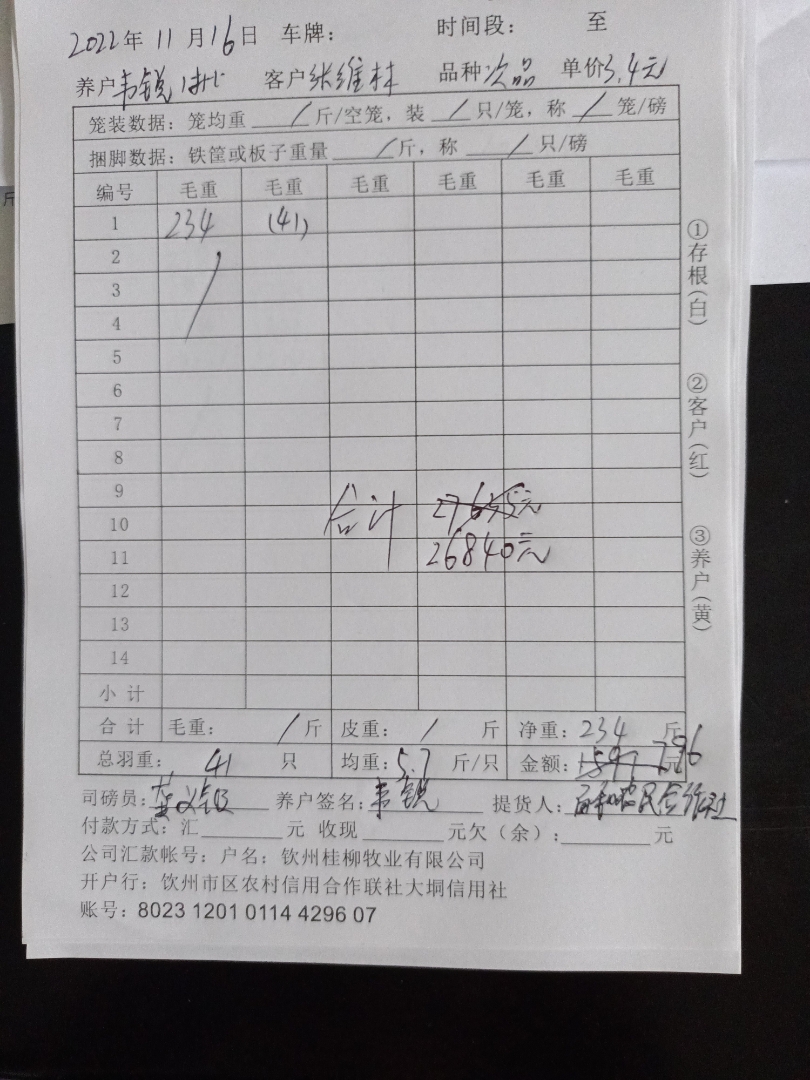 2022年 11月16日 车牌： 时间段： 至
养户韦锐 客户张维林 品种次品 单价3.4元
笼装数据：笼均重 / 斤/空笼，装 / 只/笼，称 / 笼/磅
捆脚数据：铁筐或板子重量 / 斤，称 / 只/磅
编号 毛重 毛重 毛重 毛重 毛重 毛重
1 234 (41)
2
3
4
5
6
7
8
9
合计 27655元
10
26840元
11
12
13
14
小计
合计 毛重： / 斤 皮重： / 斤 净重：234 斤
总羽重： 41 只 均重：5.7 斤/只 金额：1597 796 元
司磅员： 养户签名：韦锐 提货人：农民合作社
付款方式：汇 元 收现 元欠（余）： 元
公司汇款帐号：户名：钦州桂柳牧业有限公司
开户行：饮州市区农村信用合作联社大垌信用社
账号：8023 1201 0114 4296 07
①存根(白)
②客户(红)
③养户(黄)
斤